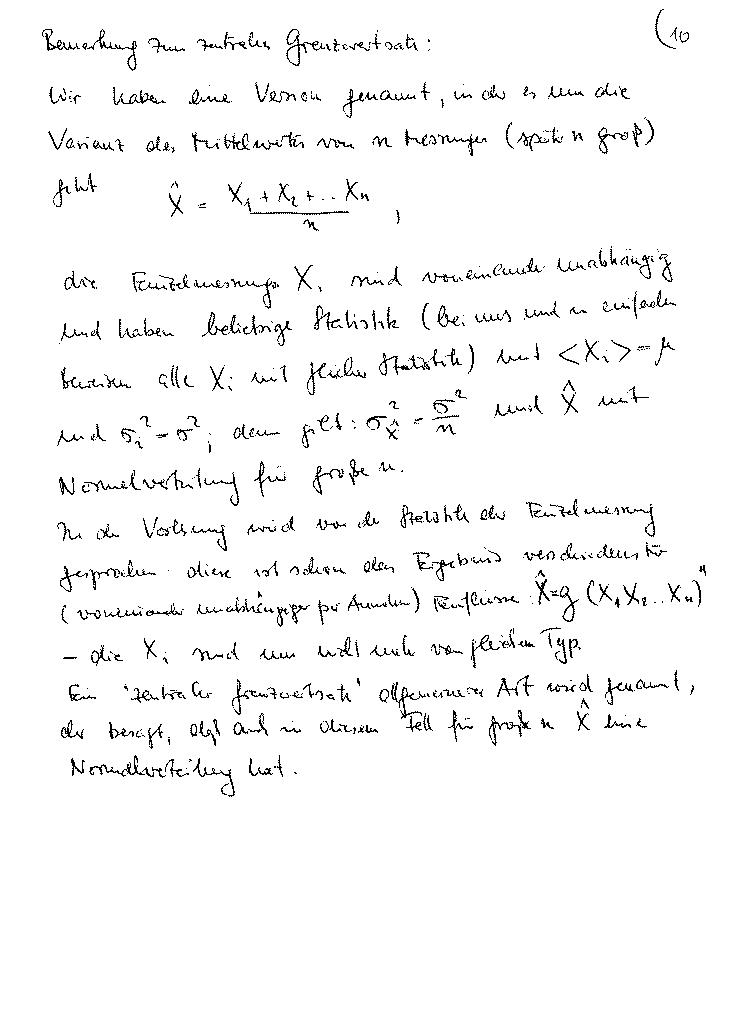 (10
Bemerkung zum zentralen Grenzwertsatz:
Wir haben eine Version genannt, in der es um die
Varianz des Mittelwertes von n Messungen (später n groß)
geht X̂ = (X₁ + X₂ + .. Xₙ)/n ,
die Einzelmessungen Xᵢ sind voneinander unabhängig
und haben beliebige Statistik (bei uns und in einfachen
Beweisen alle Xᵢ mit gleicher Statistik) mit <Xᵢ> = μ
und σᵢ² = σ²; dann gilt: σ_X̂² = σ²/n und X̂ mit
Normalverteilung für große n.
In der Vorlesung wird von der Statistik der Einzelmessung
gesprochen diese ist schon das Ergebnis verschiedenster
(voneinander unabhängiger per Annahme) Einflüsse X̂ = g (X₁ X₂ .. Xₙ)"
– die Xᵢ sind nun nicht mehr von gleichem Typ.
Ein 'zentraler Grenzwertsatz' allgemeiner Art wird genannt,
der besagt, daß auch in diesem Fall für große n X̂ eine
Normalverteilung hat.